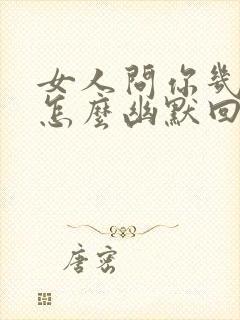 女人問你幾
怎麼幽默回
唐密